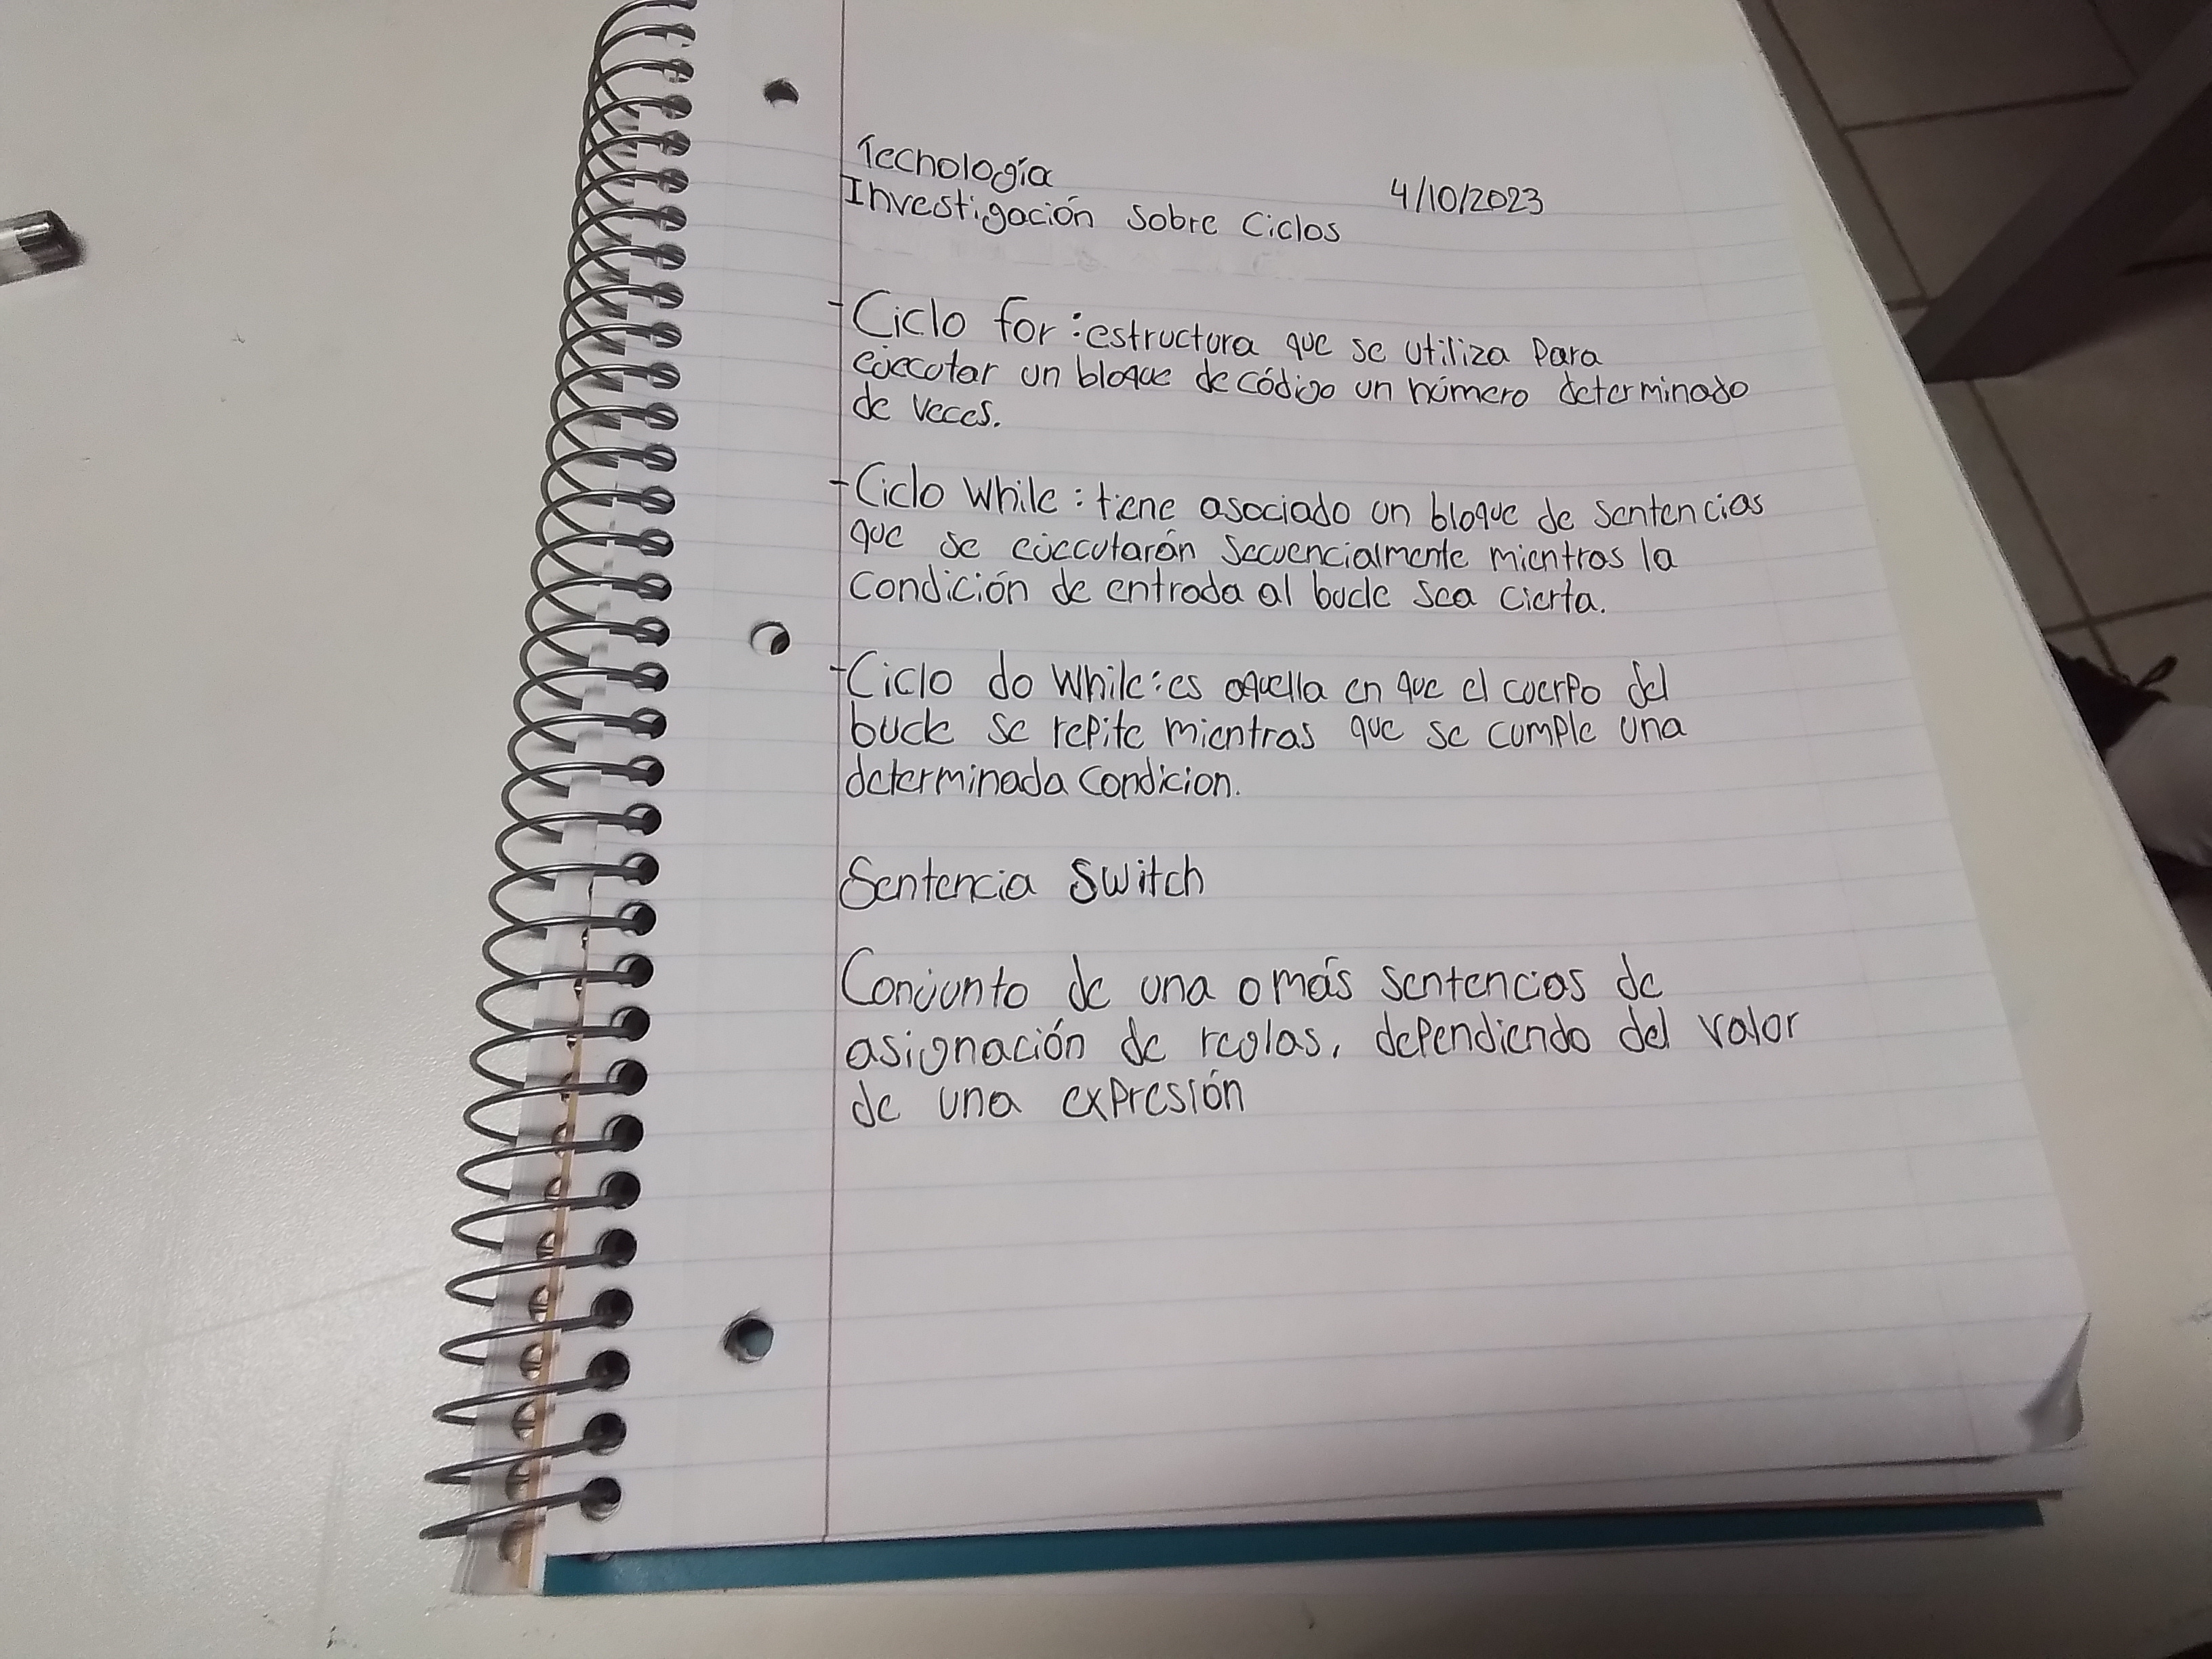 Tecnología
Investigación sobre Ciclos 4/10/2023
-Ciclo for: estructura que se utiliza para
ejecutar un bloque de código un número determinado
de veces.
-Ciclo While: tiene asociado un bloque de sentencias
que se ejecutarán secuencialmente mientras la
condición de entrada al bucle sea cierta.
-Ciclo do While: es aquella en que el cuerpo del
bucle se repite mientras que se cumple una
determinada condicion.
Sentencia Switch
Conjunto de una o más sentencias de
asignación de reglas, dependiendo del valor
de una expresión